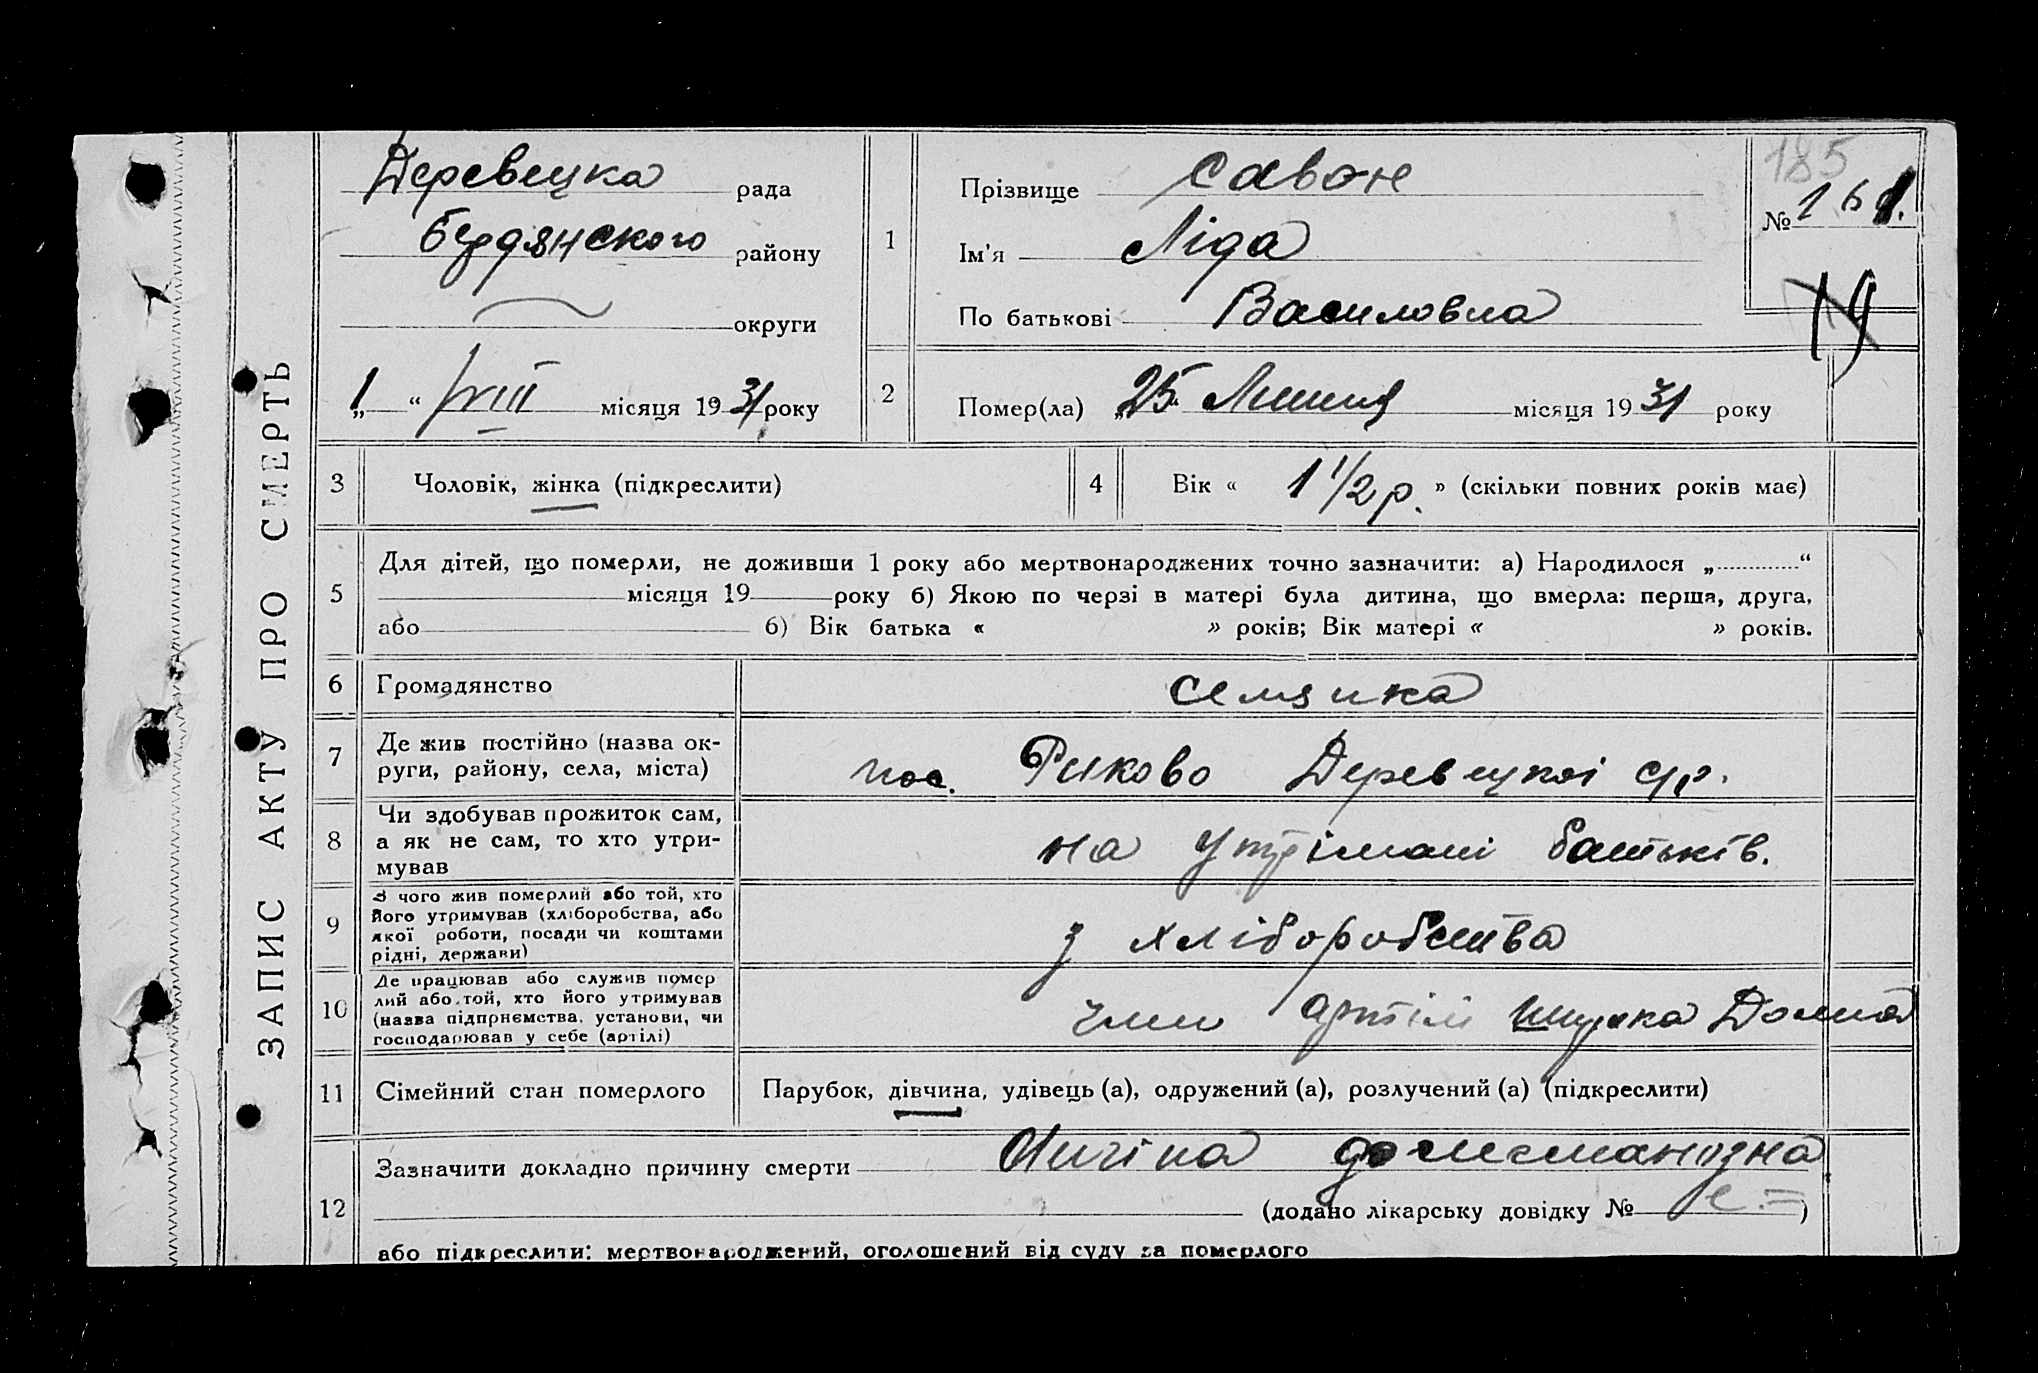 ЗАПИС АКТУ ПРО СМЕРТЬ
Деревецка рада
Бердянского району
округи
„1“ VIII місяця 1931 року
1
Прізвище Савон
Ім'я Ліда
По батькові Василовна
185
№ 161.
19
2
Помер(ла) „25“ Липня місяця 1931 року
3 Чоловік, жінка (підкреслити)
4 Вік « 1 1/2 р. » (скільки повних років має)
5 Для дітей, що померли, не доживши 1 року або мертвонароджених точно зазначити: а) Народилося „ “
місяця 19 року б) Якою по черзі в матері була дитина, що вмерла: перша, друга,
або б) Вік батька « » років; Вік матері « » років.
6 Громадянство
7 Де жив постійно (назва ок-
руги, району, села, міста)
пос. Риково Деревецкої с/р.
8 Чи здобував прожиток сам,
а як не сам, то хто утри-
мував
на утрімані батьків.
9 З чого жив померлий або той, хто
його утримував (хліборобства, або
якої роботи, посади чи коштами
рідні, держави)
з хліборобства
10 Де працював або служив помер
лий або той, хто його утримував
(назва підпрнємства, установи, чи
господарював у себе (артілі)
член артілі
11 Сімейний стан померлого Парубок, дівчина, удівець (а), одружений (а), розлучений (а) (підкреслити)
12 Зазначити докладно причину смерти
(додано лікарську довідку № )
або підкреслити: мертвонароджений, оголошений від суду за померлого